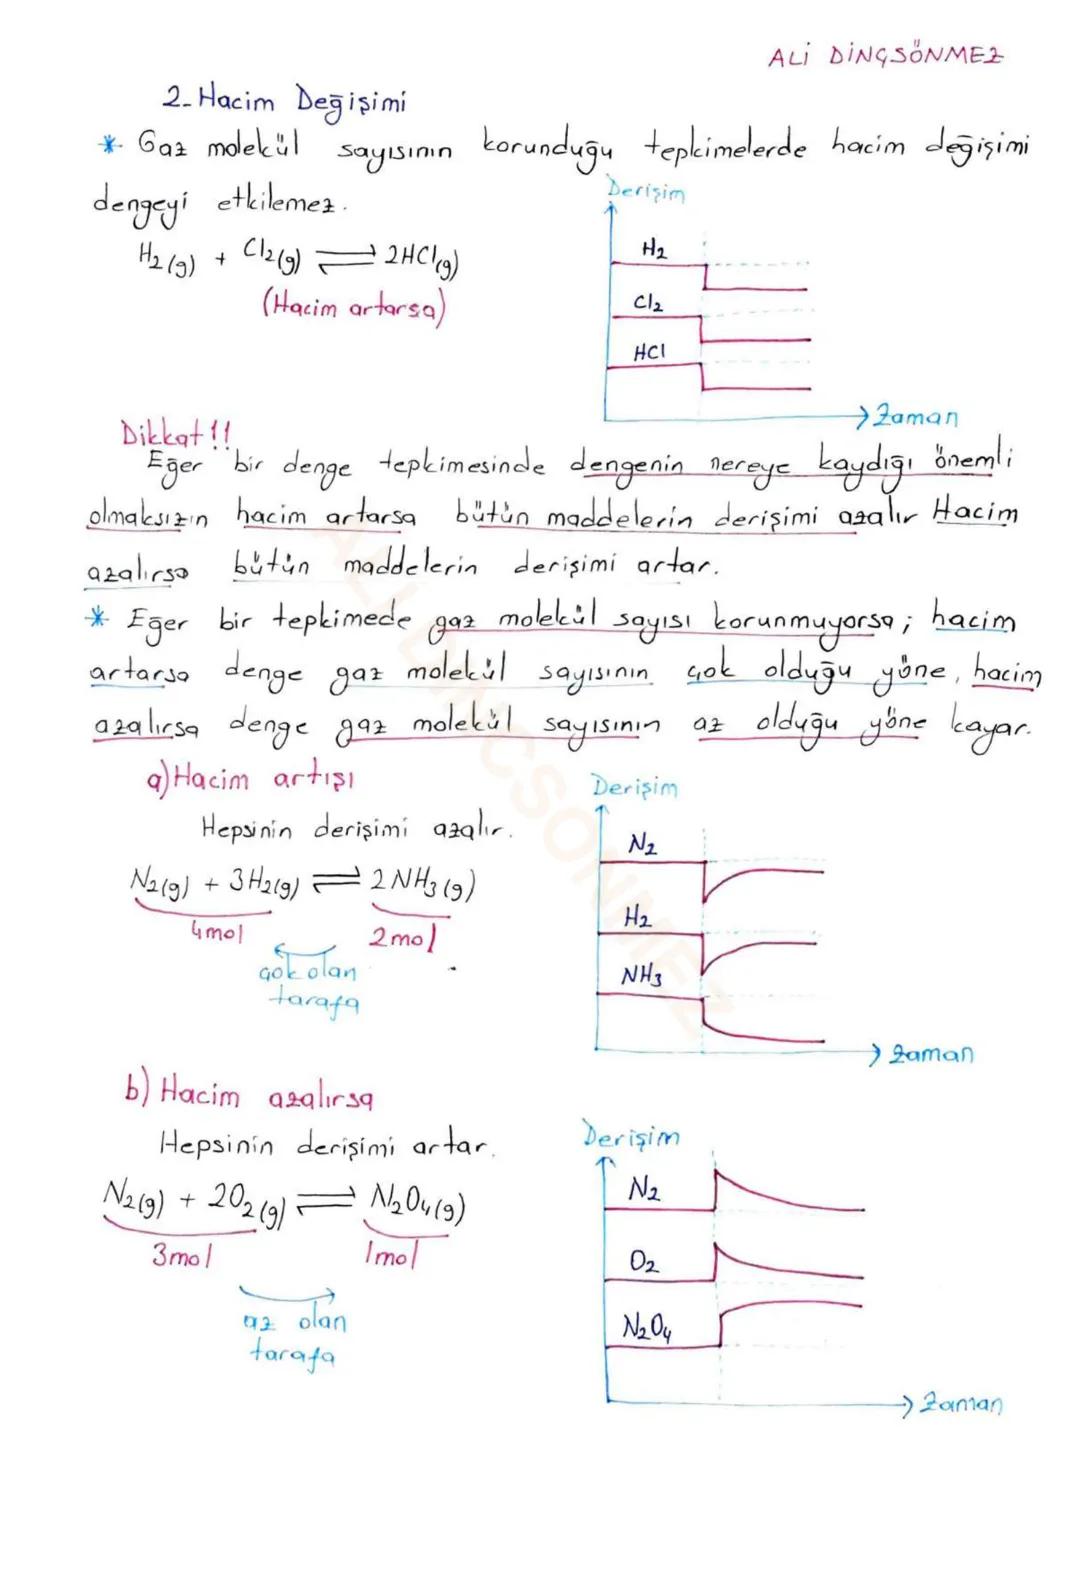 ALİ DİNÇSÖNMEZ
2- Hacim Değişimi
* Gaz molekül sayısının korunduğu tepkimelerde hacim değişimi
dengeyi etkilemez.
Derişim
H₂(g) + Cl₂(g) ⇌ 2HCl(g)
(Hacim artarsa)
H₂
Cl₂
HCl
Zaman
Dikkat!!
Eğer bir denge tepkimesinde dengenin nereye kaydığı önemli
olmaksızın hacim artarsa bütün maddelerin derişimi azalır Hacim
azalırsa bütün maddelerin derişimi artar.
* Eğer bir tepkimede gaz molekül sayısı korunmuyorsa; hacim
artarsa denge gaz molekül sayısının çok olduğu yöne, hacim
azalırsa denge gaz molekül sayısının az olduğu yöne kayar.
a) Hacim artışı
Hepsinin derişimi azalır.
N₂(g) + 3H₂(g) ⇌ 2NH₃(g)
4mol 2mol
çok olan
tarafa
Derişim
N₂
H₂
NH₃
Zaman
b) Hacim azalırsa
Hepsinin derişimi artar.
N₂(g) + 2O₂(g) ⇌ N₂O₄(g)
3mol 1mol
az olan
tarafa
Derişim
N₂
O₂
N₂O₄
Zaman
ALİ DİNÇSÖNMEZ